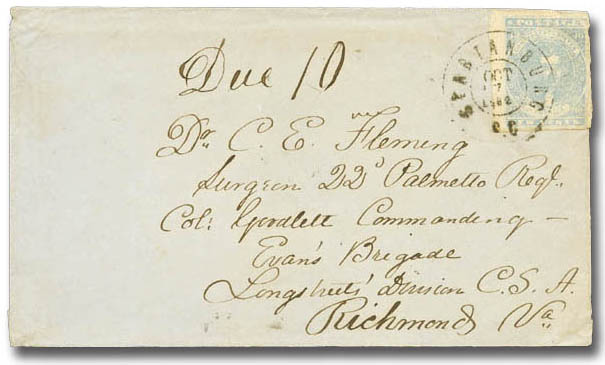 Due 10
SPARTANBURG
OCT
7
1862
S.C
POSTAGE
Dr. C. E. Fleming
Surgeon 22d Palmetto Regt.
Col: Goodlett Commanding –
Evans Brigade
Longstreets' Division C. S. A.
Richmond Va